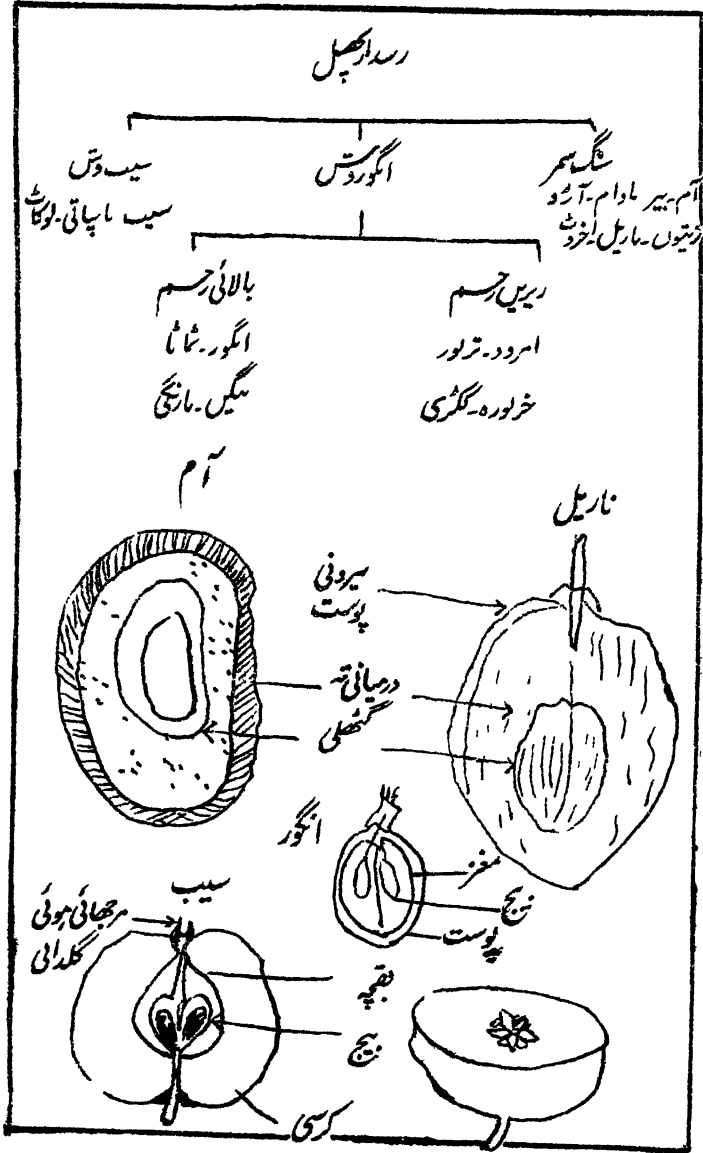 رسدار پھل
سنگ سمر
آم۔بیر بادام۔آڑو
زیتون۔ناریل۔اخروٹ
انگوروش
سیب وش
سیب ناپاتی۔لوکاٹ
زیریں رحم
امرود۔تربور
خربوره۔ککڑی
بالائی رحم
انگور۔ٹماٹا
بیگن۔نارنگی
آم
ناریل
بیرونی
پوست
درمیانی تہ
گٹھلی
انگور
مغز
بیج
پوست
سیب
مرجھائی ہوئی
گلدانی
بقچہ
بیج
کرسی